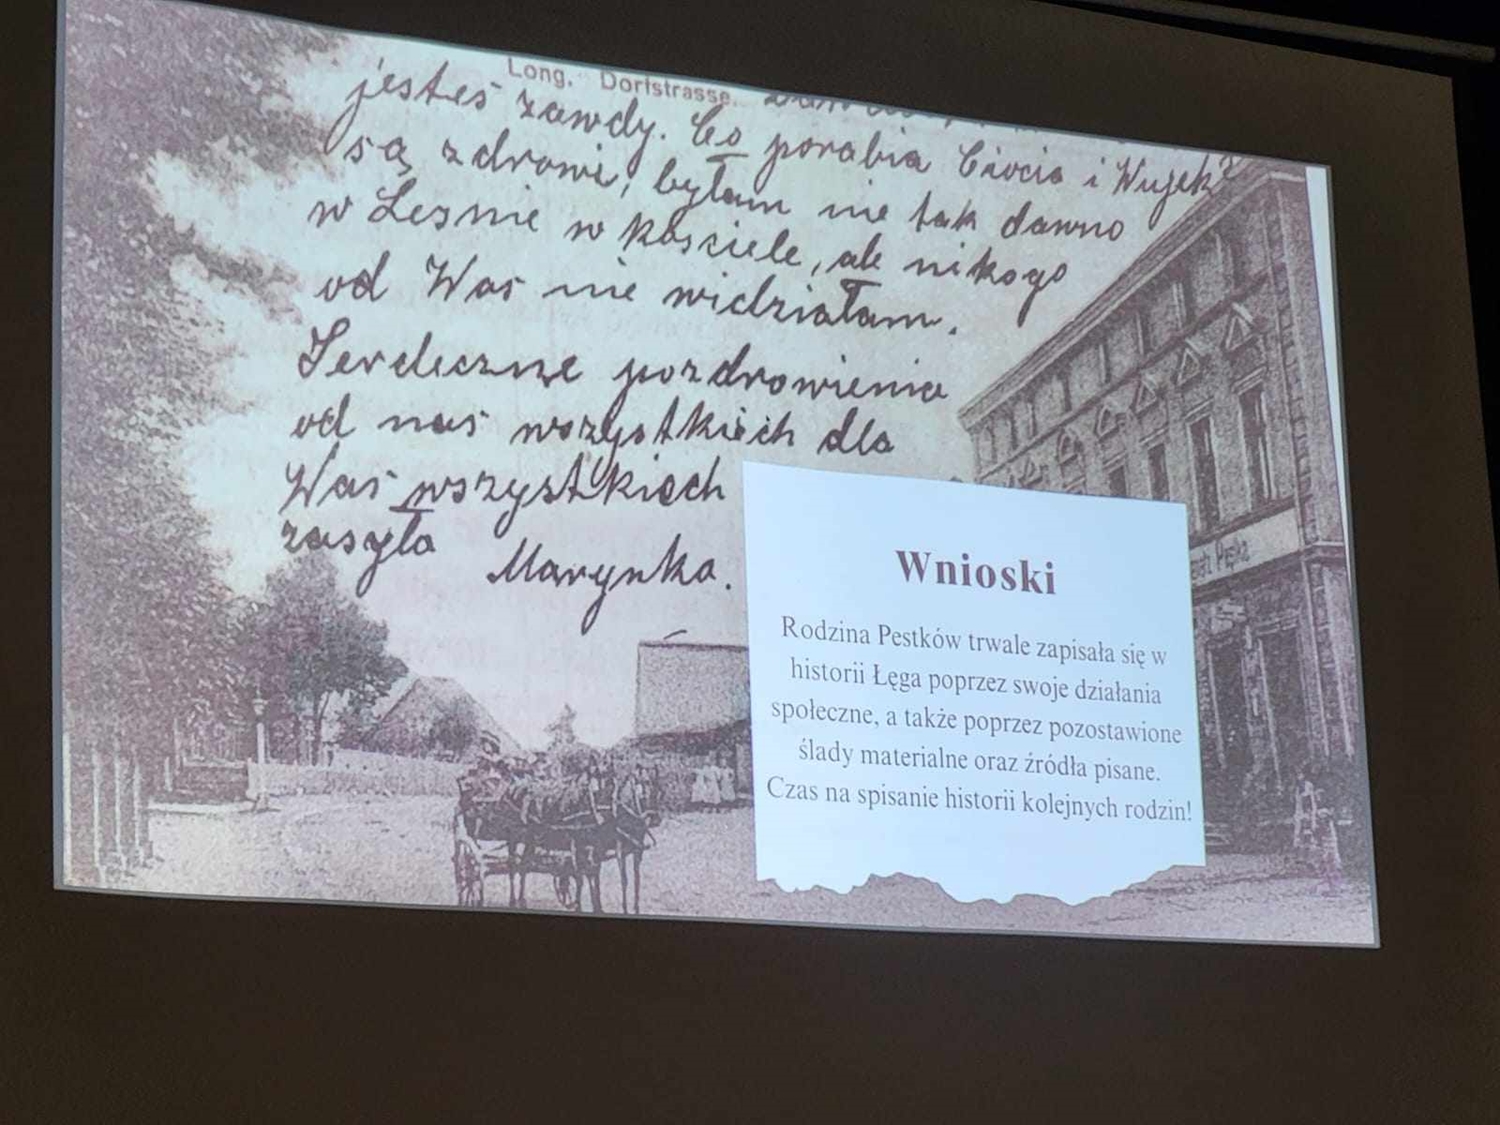 Long. Dorfstrasse.
jesteś zawdy. Co porabia Ciocia i Wujek?
są zdrowi, byłam nie tak dawno
w Lesnie w kosciele, ale nikogo
od Was nie widziałam.
Serdeczne pozdrowienia
od nas wszystkich dla
Was wszystkiech
zasyła Marynka.
Wnioski
Rodzina Pestków trwale zapisała się w
historii Łęga poprzez swoje działania
społeczne, a także poprzez pozostawione
ślady materialne oraz źródła pisane.
Czas na spisanie historii kolejnych rodzin!